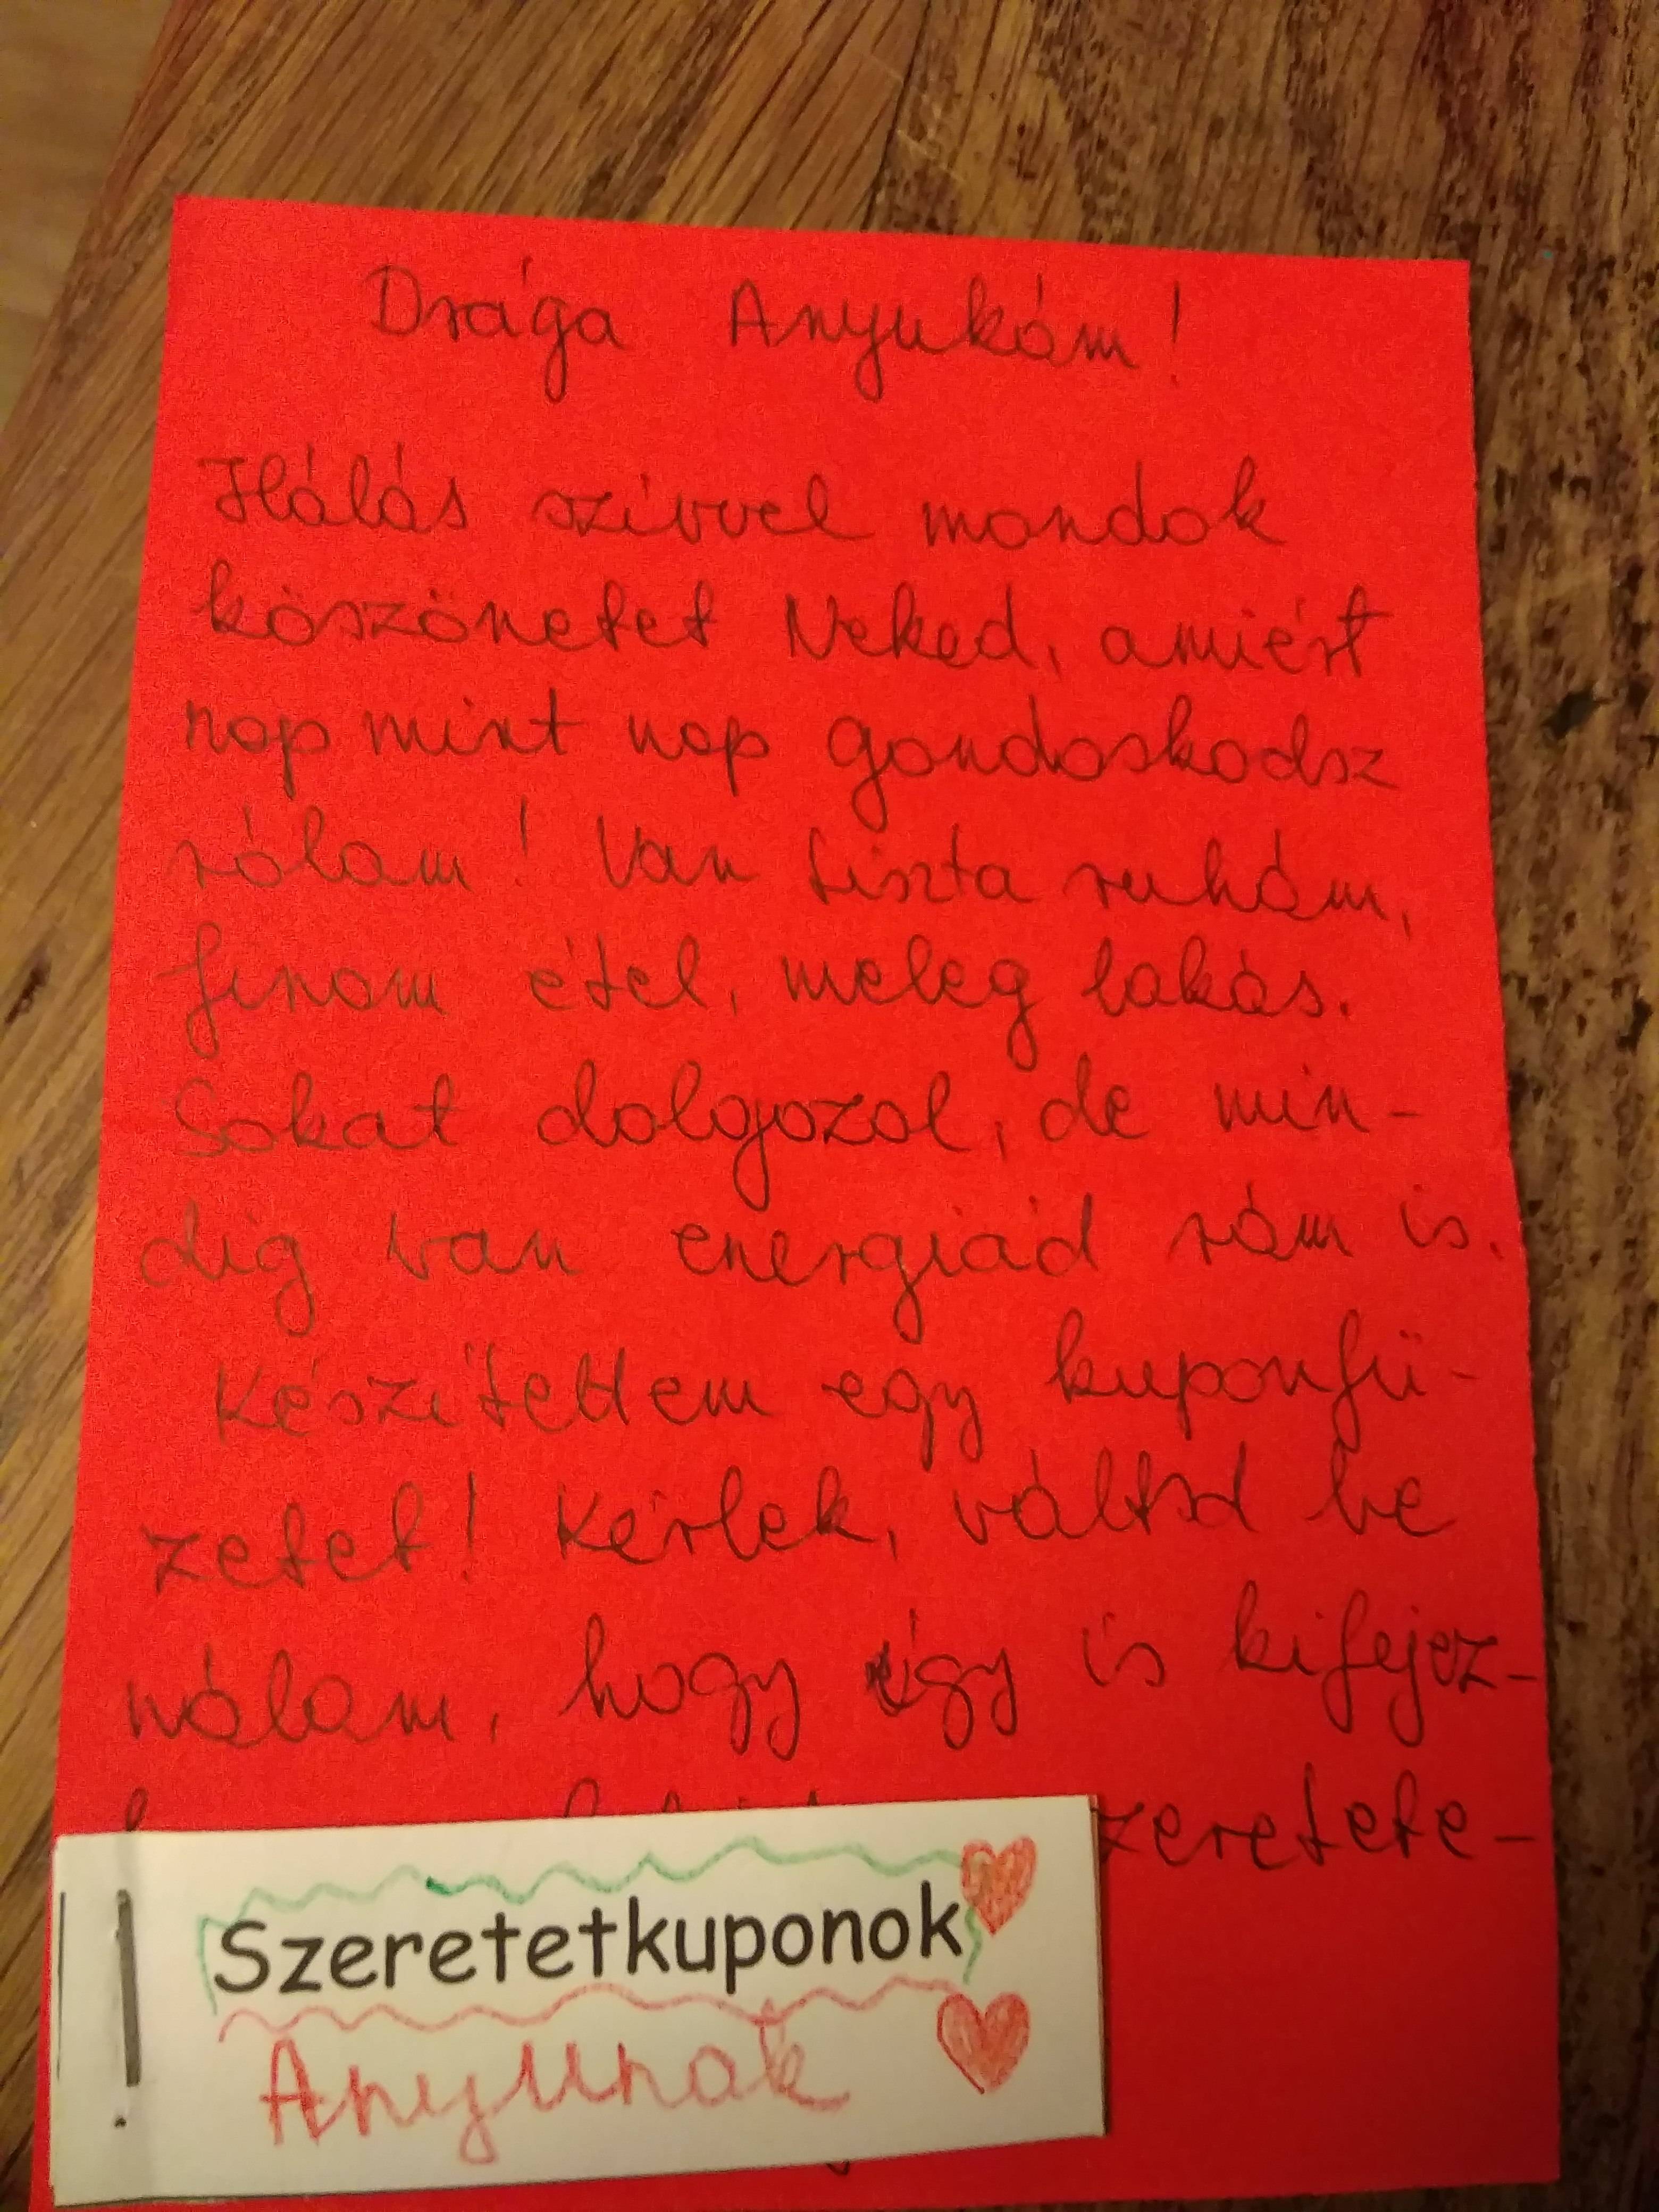 Drága Anyukám!
Hálás szívvel mondok
köszönetet Neked, amiért
nap mint nap gondoskodsz
rólam! Van tiszta ruhám,
finom étel, meleg lakás.
Sokat dolgozol, de min-
dig van energiád rám is.
Készítettem egy kuponfü-
zetet! Kérlek, váltsd be
nálam, hogy így is kifejez-
zeretete-
Szeretetkuponok
Anyunak